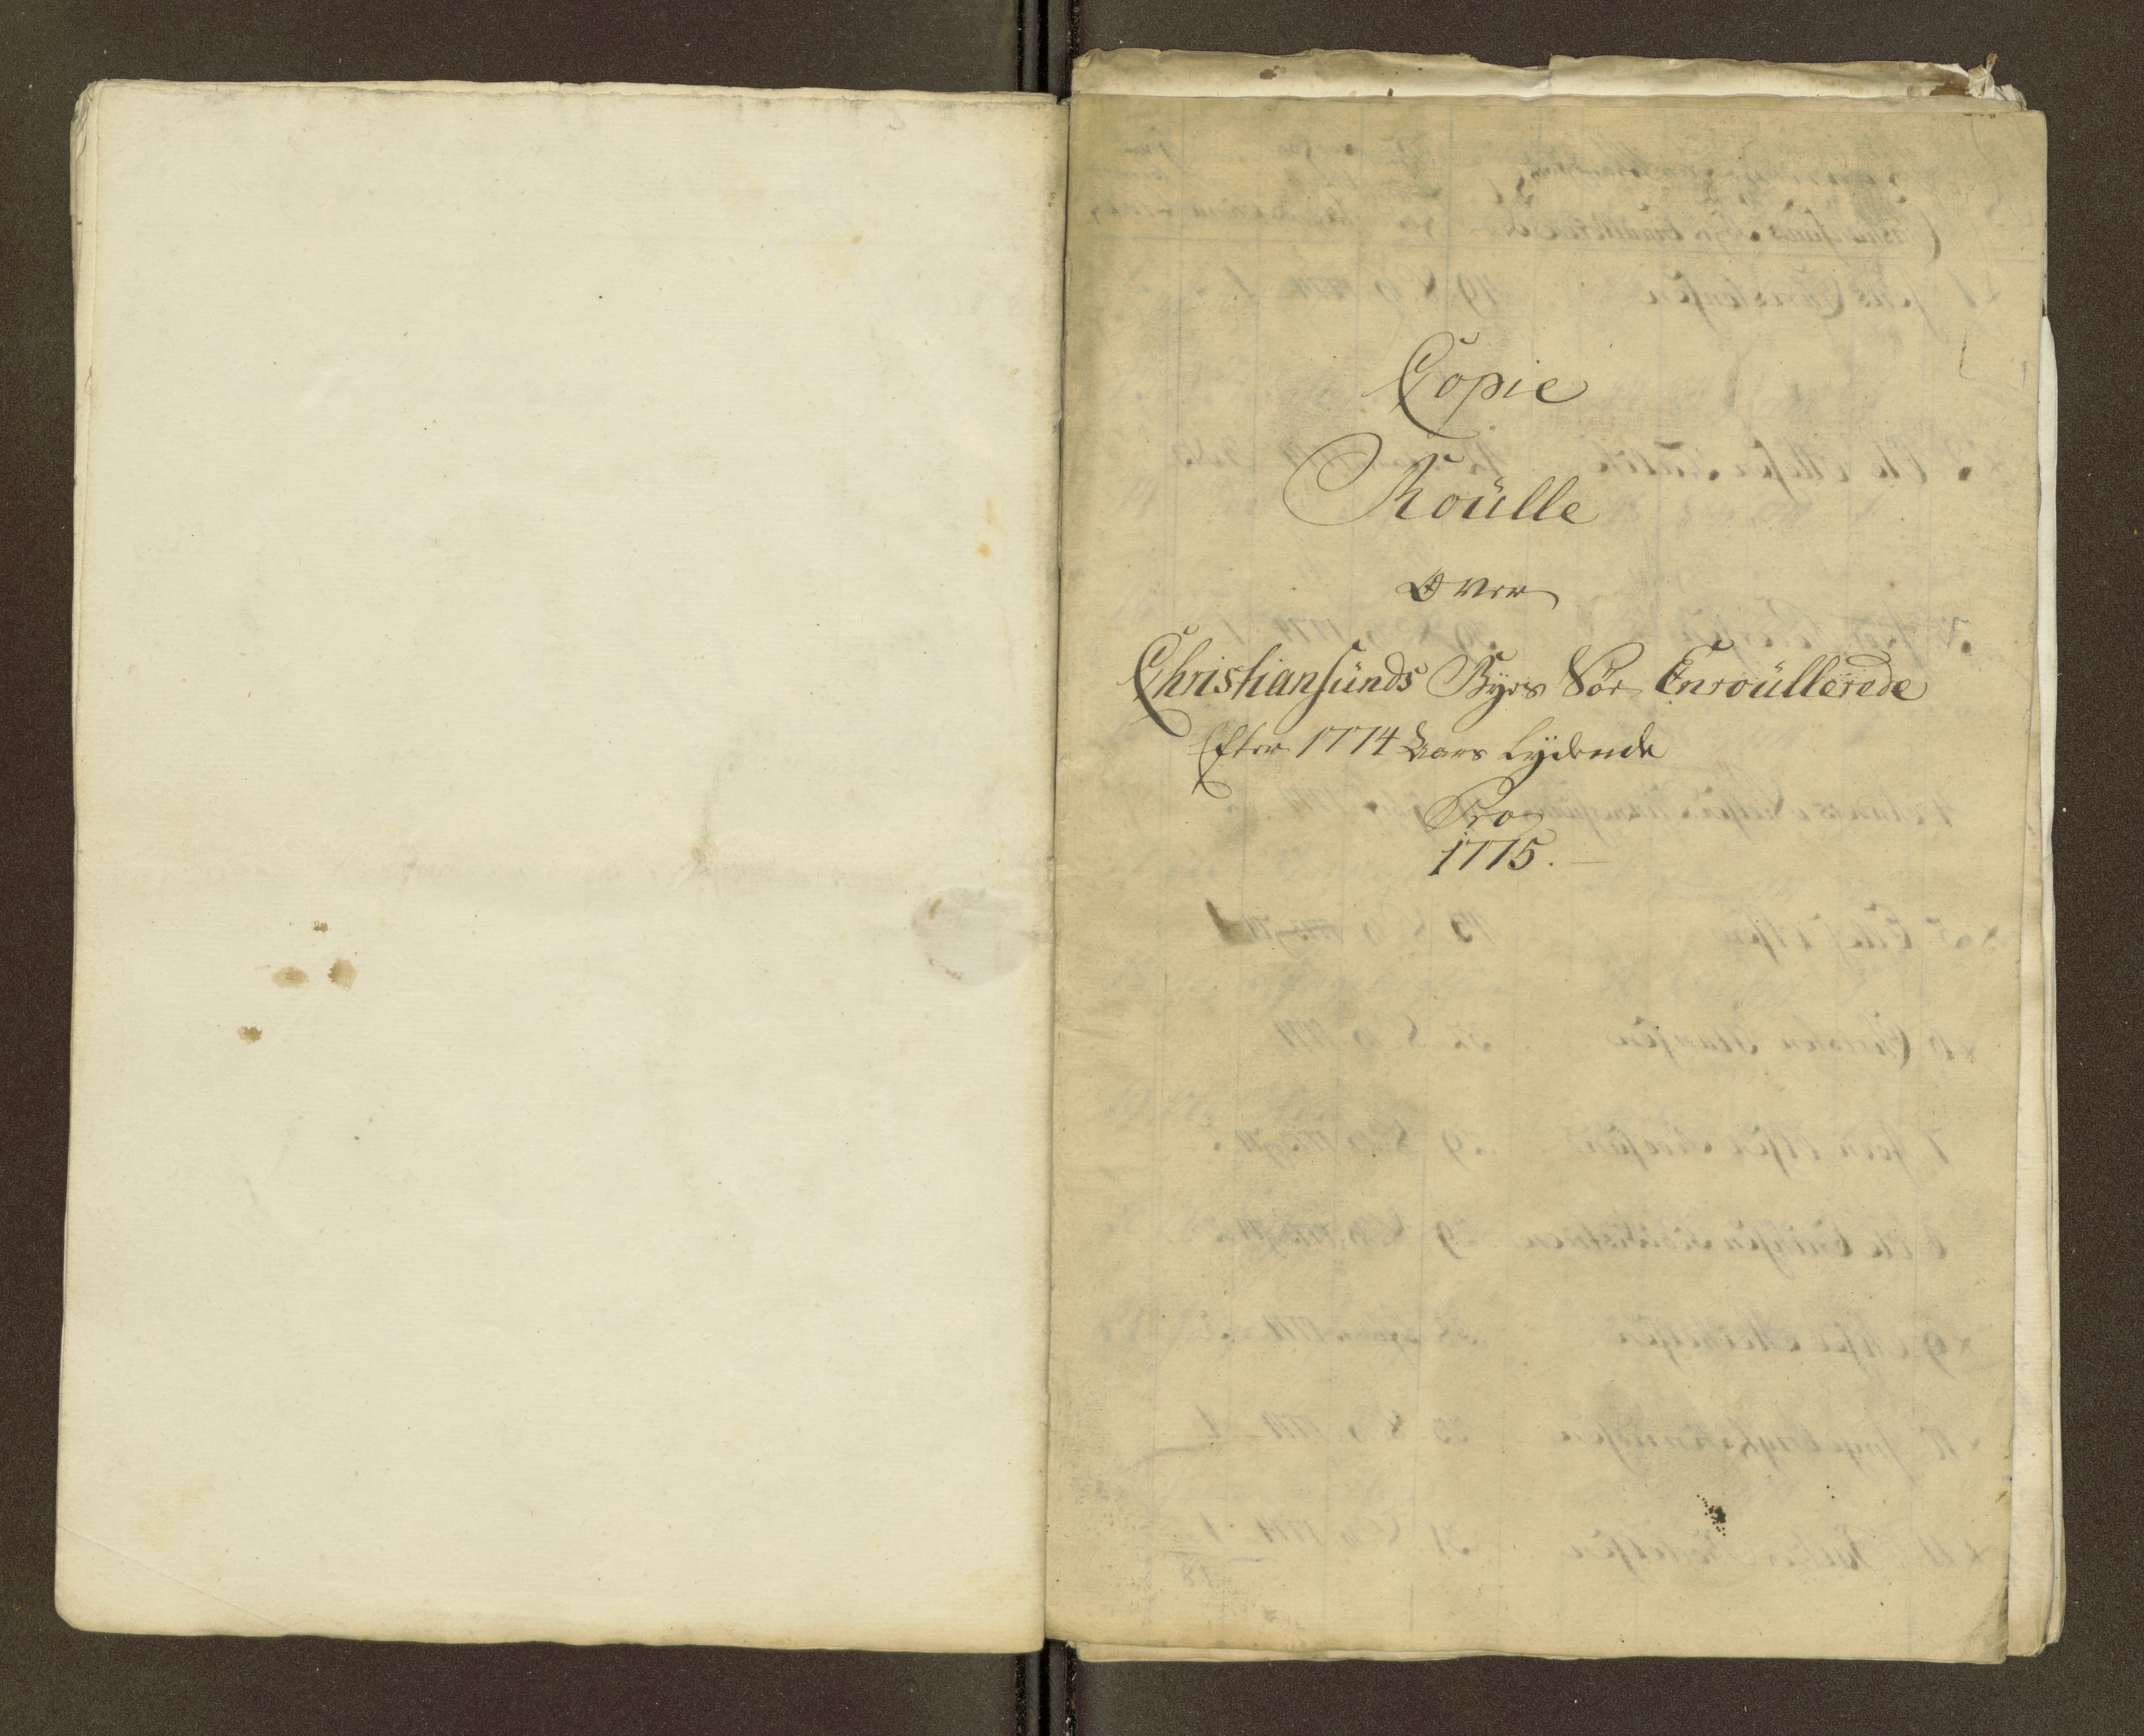 Copie
Roülle
Over
Christiansünds Byes Söe Enroüllerede
Efter 1774 Aars Lydende
Pro
1775.